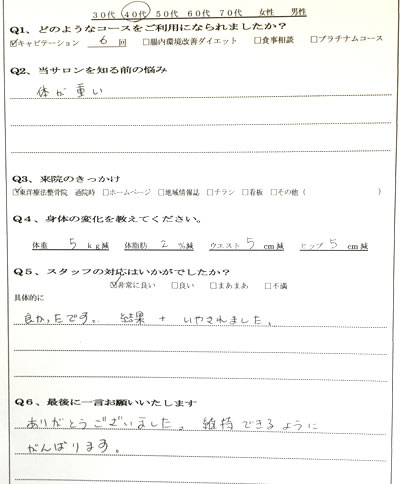 30代 40代 50代 60代 70代 女性 男性
Q1、どのようなコースをご利用になられましたか？
☑キャビテーション 6 回 □腸内環境改善ダイエット □食事相談 □プラチナムコース
Q2、当サロンを知る前の悩み
体が重い
Q3、来院のきっかけ
☑東洋療法整骨院 通院時 □ホームページ □地域情報誌 □チラシ □看板 □その他（ ）
Q4、身体の変化を教えてください。
体重 5 kg減 体脂肪 2 %減 ウエスト 5 cm減 ヒップ 5 cm減
Q5、スタッフの対応はいかがでしたか？
☑非常に良い □良い □まあまあ □不満
具体的に
良かったです。 結果 + いやされました。
Q6、最後に一言お願いいたします
ありがとうございました。維持できるように
がんばります。